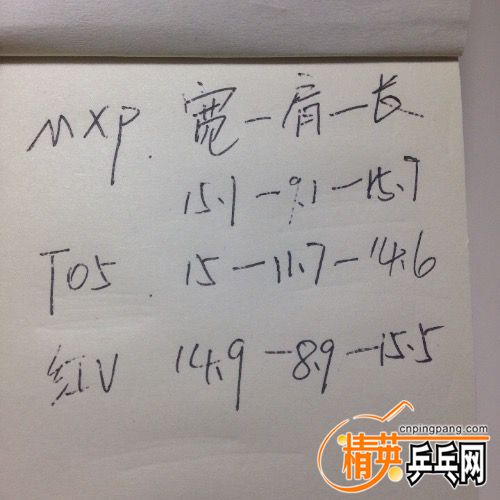 MXP. 宽一肩一长
15.1-9.1-15.7
T05. 15-11.7-14.6
红V 14.9-8.9-15.5
cnpingpang.com
精英乒乓网